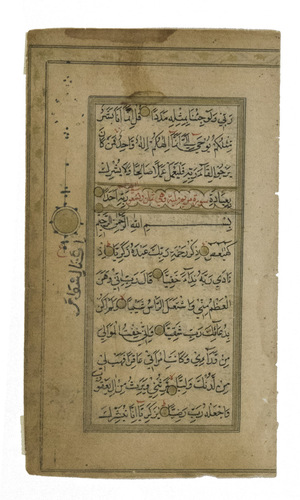 رَبِّي وَلَوْ جِئْنَا بِمِثْلِهِ مَدَدًا قُلْ إِنَّمَا أَنَا بَشَرٌ
مِثْلُكُمْ يُوحَى إِلَيَّ أَنَّمَا إِلَهُكُمْ إِلَهٌ وَاحِدٌ فَمَنْ كَانَ
يَرْجُوا لِقَاءَ رَبِّهِ فَلْيَعْمَلْ عَمَلًا صَالِحًا وَلَا يُشْرِكْ
بِعِبَادَةِ رَبِّهِ أَحَدًا
سورة مريم
بِسْمِ اللهِ الرَّحْمَنِ الرَّحِيمِ
كهيعص ذِكْرُ رَحْمَةِ رَبِّكَ عَبْدَهُ زَكَرِيَّا إِذْ
نَادَى رَبَّهُ نِدَاءً خَفِيًّا قَالَ رَبِّ إِنِّي وَهَنَ
الْعَظْمُ مِنِّي وَاشْتَعَلَ الرَّأْسُ شَيْبًا وَلَمْ أَكُنْ
بِدُعَائِكَ رَبِّ شَقِيًّا وَإِنِّي خِفْتُ الْمَوَالِيَ
مِنْ وَرَائِي وَكَانَتِ امْرَأَتِي عَاقِرًا فَهَبْ لِي
مِنْ لَدُنْكَ وَلِيًّا يَرِثُنِي وَيَرِثُ مِنْ آلِ يَعْقُوبَ
وَاجْعَلْهُ رَبِّ رَضِيًّا يَا زَكَرِيَّا إِنَّا نُبَشِّرُكَ